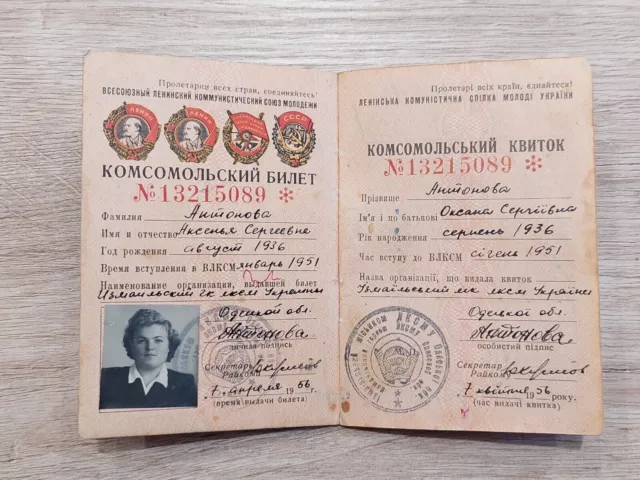 Пролетарии всех стран, соединяйтесь!
ВСЕСОЮЗНЫЙ ЛЕНИНСКИЙ КОММУНИСТИЧЕСКИЙ СОЮЗ МОЛОДЕЖИ
ЛЕНИН ЛЕНИН СССР
КОМСОМОЛЬСКИЙ БИЛЕТ
№13215089 *
Фамилия Антонова
Имя и отчество Аксенья Сергеевна
Год рождения август 1936
Время вступления в ВЛКСМ январь 1951
Наименование организации, выдавшей билет
Измаильский гк лксм Украины
Одесской обл.
Антонова
личная подпись
Секретарь
Райкома
7 апреля 1956 г.
(время выдачи билета)
Пролетарі всіх країн, єднайтеся!
ЛЕНІНСЬКА КОМУНІСТИЧНА СПІЛКА МОЛОДІ УКРАЇНИ
КОМСОМОЛЬСЬКИЙ КВИТОК
№13215089 *
Прізвище Антонова
Ім'я і по батькові Оксана Сергіївна
Рік народження серпень 1936
Час вступу до ВЛКСМ січень 1951
Назва організації, що видала квиток
Ізмаїльський мк лксм України
Одеської обл.
Антонова
особистий підпис
Секретар
Райкому
7 квітня 1956 року
(час видачі квитка)